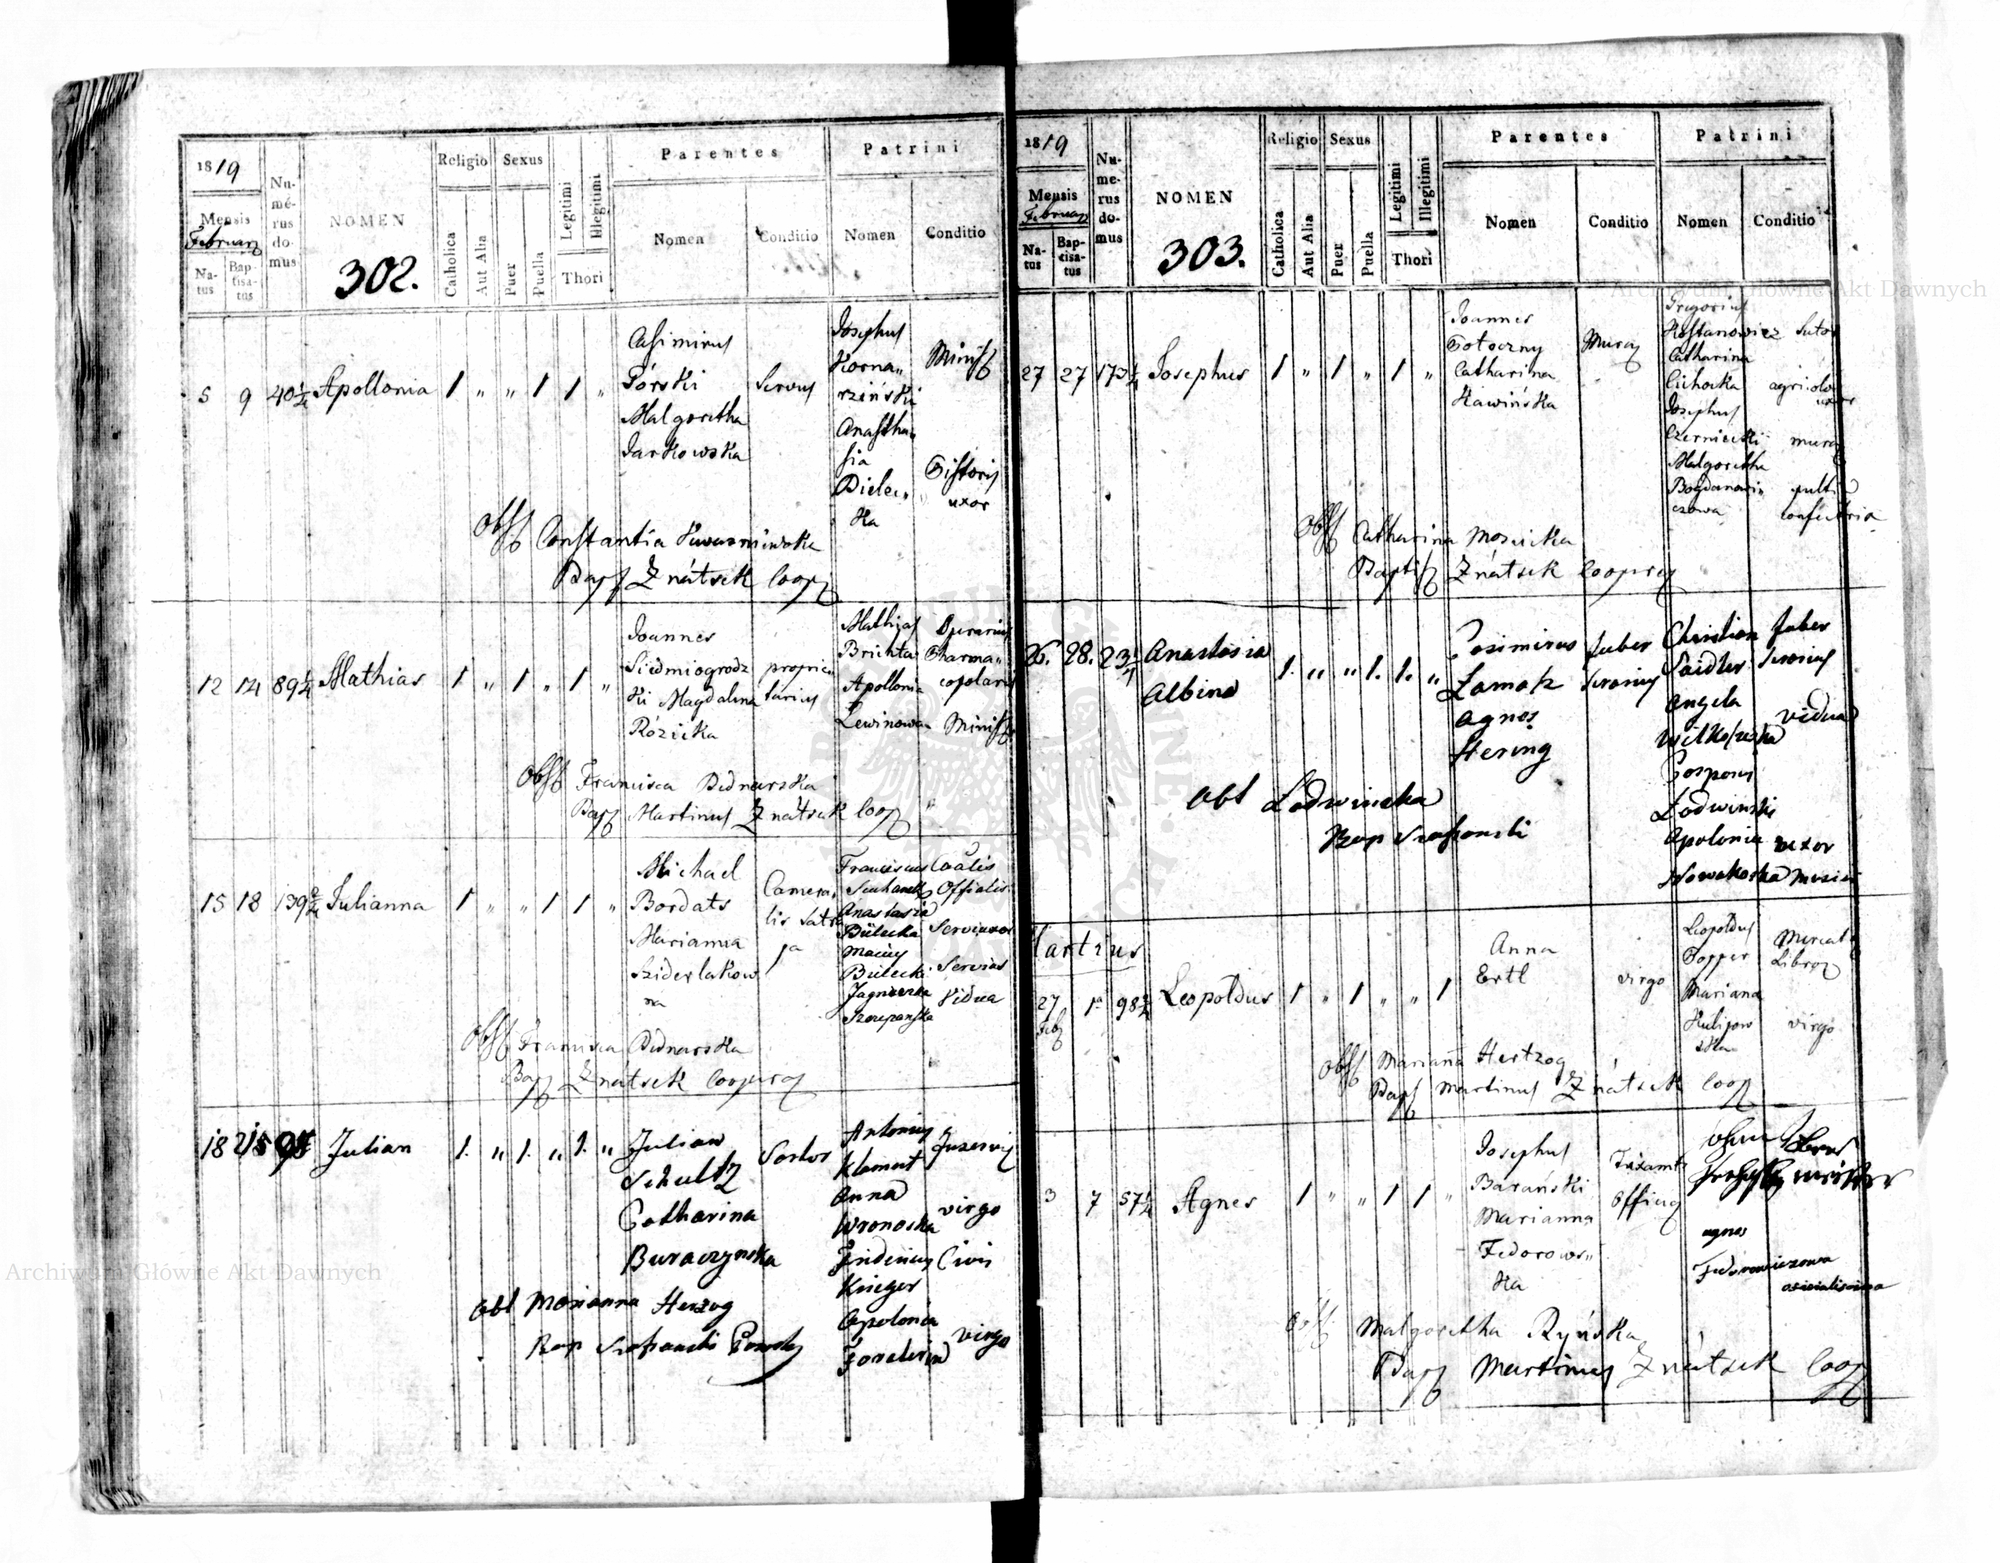 1819
Mensis
Februarz
Na-
tus
Bap-
tisa-
tus
Nu-
me-
rus
do-
mus
NOMEN
302.
Religio
Catholica
Aut Alia
Sexus
Puer
Puella
Legitimi
Illegitimi
Thori
Parentes
Nomen
Conditio
Patrini
Nomen
Conditio
5 9 40 1/4 Apollonia 1 " " 1 1 "
Casimirus
Górski
Malgoretha
Jarkowska
Servus
Josephus
Korna„
rziński
Anastha„
sia
Bielec„
ka
Minist
Pistoris
uxor
Obst Constantia
Bapt Znátsek Coop
12 14 89 1/4 Mathias 1 " 1 " 1 "
Joannes
Siedmiogrodz
ki Magdalena
Rózicka
proprie„
tarius
Mathias
Brichta
Apollonia
Lewinowa
Operarius
Pharma„
copolaris
Minist
Obst Francisca Bednarska
Bap Martinus Znátsek Coop
15 18 139 Julianna 1 " " 1 1 "
Michael
Bordats
Marianna
Sziderlakow
na
Camera„
lis Satra
pa
Franciscus
Anastasia
Bielecka
Maciey
Bielecki
Jagnieszka
Szczepanska
Officialis
Servi uxor
Servius
Vidua
Obst Francisca Bednarska
Bap Znátsek Cooperat
18 21 Julian 1. " 1. " 1. "
Julian
Schultz
Catharina
Buraczynska
Sartor
Antonius
Klement
Anna
Wronoska
Krieger
Apolonia
virgo
Civis
virgo
Obst Marianna Herzog
Bap
1819
Mensis
Februarz
Na-
tus
Bap-
tisa-
tus
Nu-
me-
rus
do-
mus
NOMEN
303.
Religio
Catholica
Aut Alia
Sexus
Puer
Puella
Legitimi
Illegitimi
Thori
Parentes
Nomen
Conditio
Patrini
Nomen
Conditio
27 27 173 1/4 Josephus 1 " 1 " 1 "
Joannes
Potoczny
Catharina
Kawińska
Murar
Gregorius
Kostanowicz
Catharina
Cichocka
Josephus
Czerniecki
Malgoretha
Bogdanowi„
czowa
Sutor
agricolae
uxor
murar
Obst Catharina Mosicka
Baptis Znátsek Cooperat
26. 28. 23 1/4 Anastasia
Albina
1. " " 1. 1. "
Casimirus
Lamak
Agnes
Hering
faber
Serarius
Christian
Saidler
Angela
Lodwinski
Apolonia
Nowakoska
faber
Serarius
vidua
uxor
Obst Lodwinska
Bap
Martius
27
Feb
1a 98 Leopoldus 1 " 1 " " 1
Anna
Ertl
virgo
Leopoldus
Popper
Mariana
virgo
Obst Marianna Hertzog
Bapt Martinus Znátsek Coop
3 7 57 1/4 Agnes 1 " " 1 1 "
Josephus
Barański
Marianna
Fedorows„
ka
Taxamts
agnes
Fedorowiczowa
Obst Malgoretha Ryńska
Bapt Martinus Znátsek Coop
Archiwum Główne Akt Dawnych
Archiwum Główne Akt Dawnych